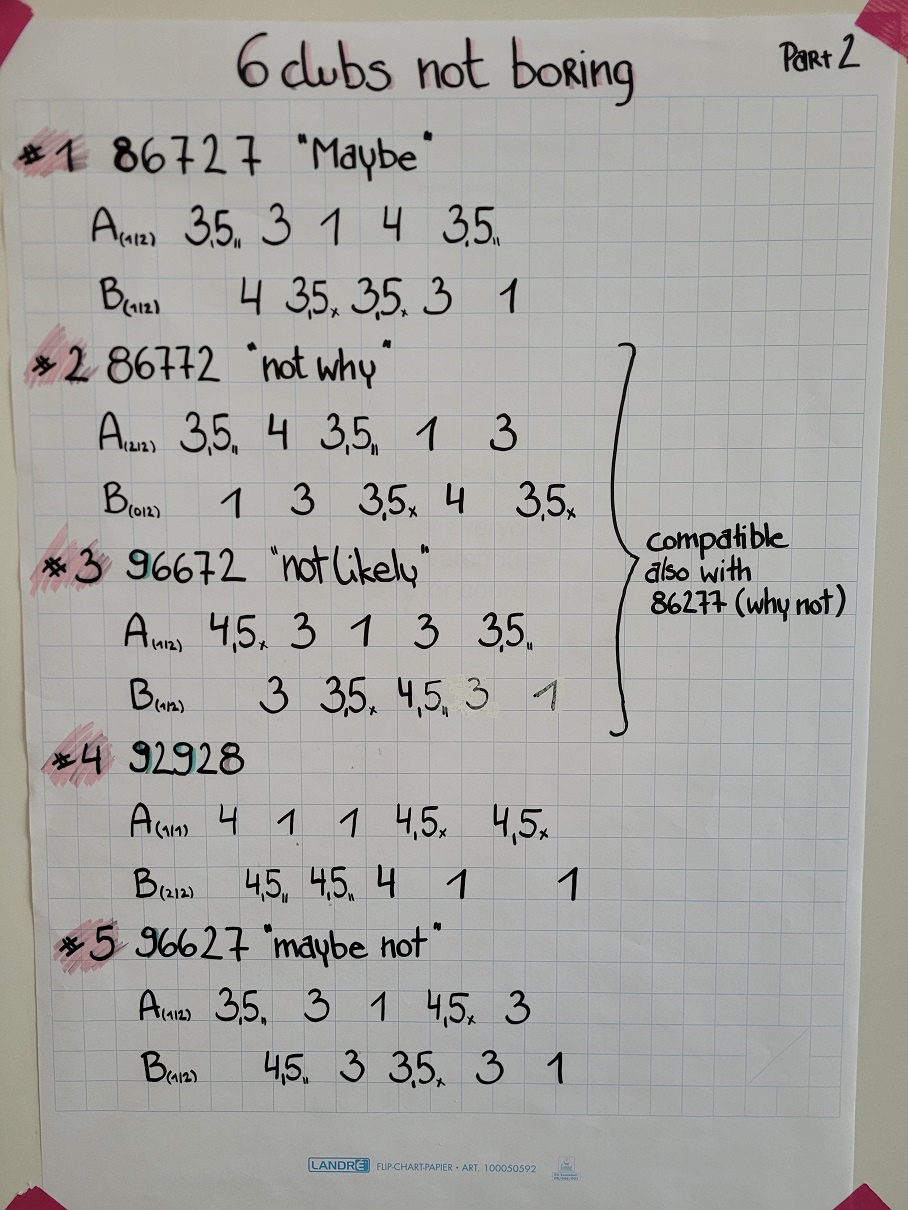 6 clubs not boring
Part 2
#1 86727 "Maybe"
A(1|2) 3,5|| 3 1 4 3,5||
B(1|2) 4 3,5x 3,5x 3 1
#2 86772 "not why"
A(2|2) 3,5|| 4 3,5|| 1 3
B(0|2) 1 3 3,5x 4 3,5x
#3 96672 "not likely"
A(1|2) 4,5x 3 1 3 3,5||
B(1|2) 3 3,5x 4,5|| 3 1
compatible
also with
86277 (why not)
#4 92928
A(1|1) 4 1 1 4,5x 4,5x
B(2|2) 4,5|| 4,5|| 4 1 1
#5 96627 "maybe not"
A(1|2) 3,5|| 3 1 4,5x 3
B(1|2) 4,5|| 3 3,5x 3 1
LANDRÉ FLIP-CHART-PAPIER • ART. 100050592